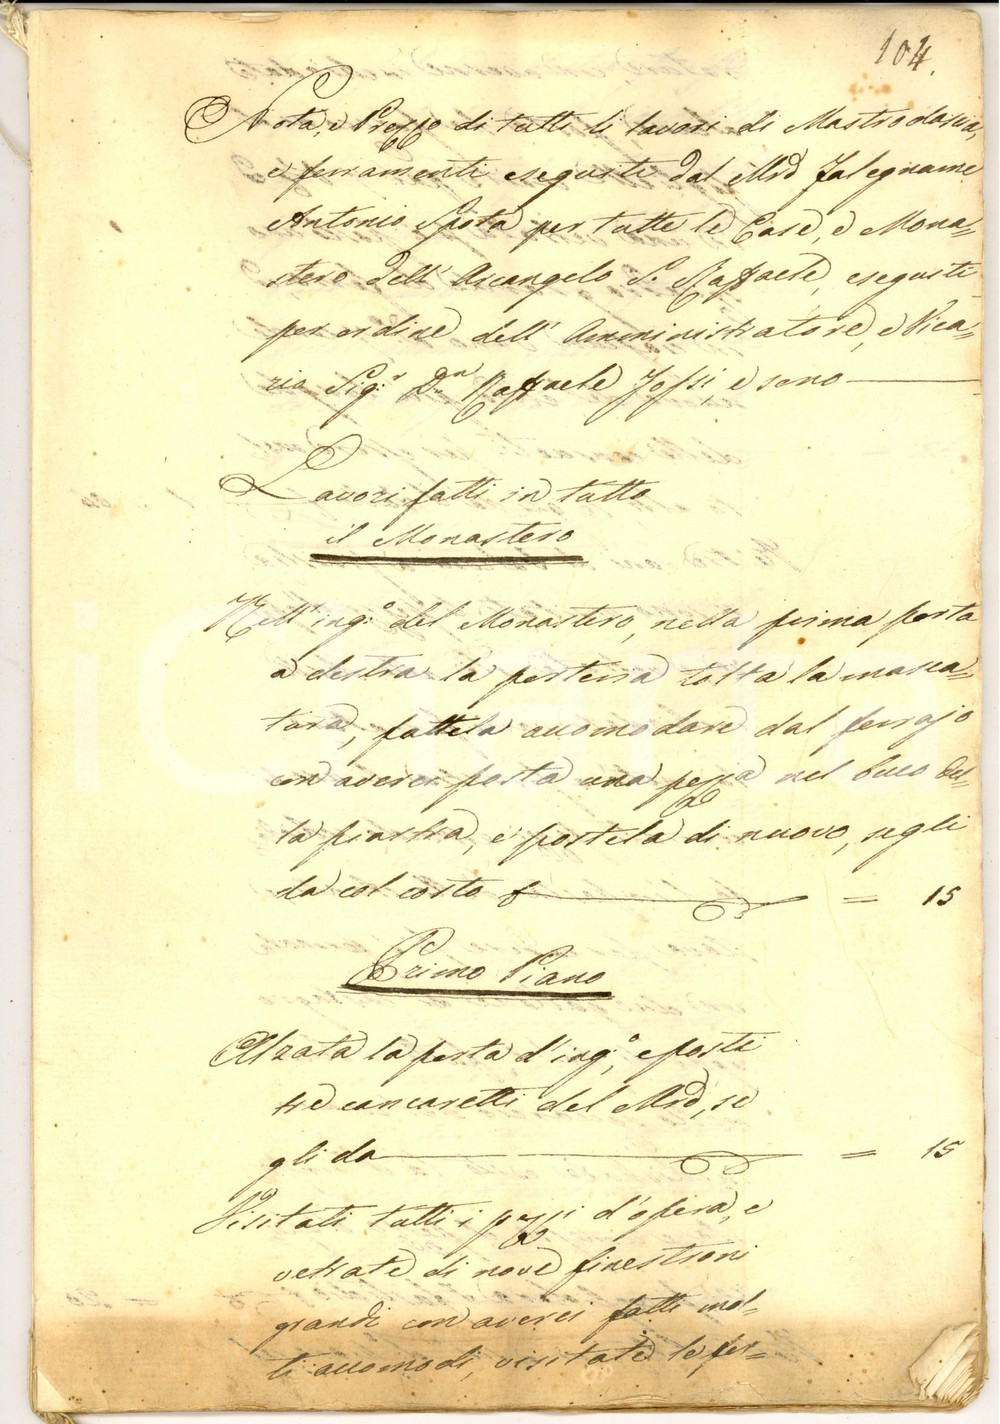 104.
Nota, e Prezzo di tutti li lavori di Mastrodascia,
e ferramenti eseguiti dal Mro Falegname
Antonio Spota per tutte le Case, e Mona=
stero dell' Arcangelo S. Raffaele, eseguiti
per ordine dell' Amministratore, e Vica=
rio Sigr. Dn Raffaele Jossi, e sono
Lavori fatti in tutto
il Monastero
Nell' ingo: del Monastero, nella prima porta
a destra la porteria tolta la masca=
tura, fattela accomodare dal ferrajo
con averci posta una pezza nel buco del=
la piastra, e postela di nuovo, segli
da col costo = 15
Primo Piano
Alzata la porta d'ingo:, e posti
tre cancaretti del Mro, se
gli da = 15
Visitati tutti i pezzi d'opera, e
vetrate di nove finestroni
grandi con averci fatti mol=
ti accomodi, visitate le fer=